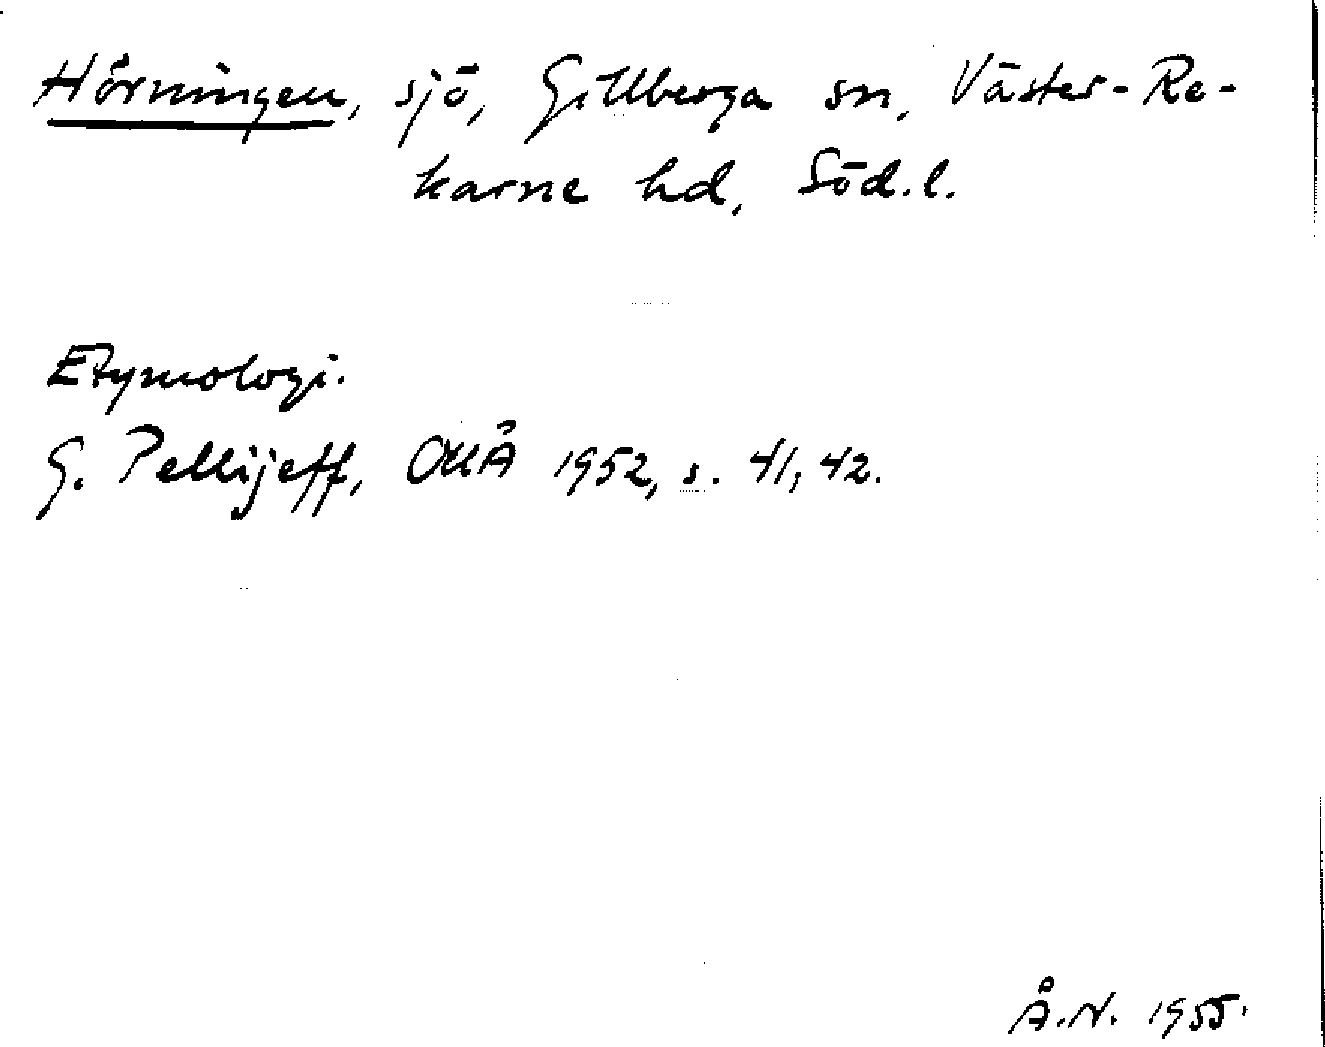 Hörningen, sjö, Gillberga sn, Väster-Re-
karne hd, Söd.l.
Etymologi.
G. Pellijeff, OUÅ 1952, s. 41, 42.
Å.N. 1955.